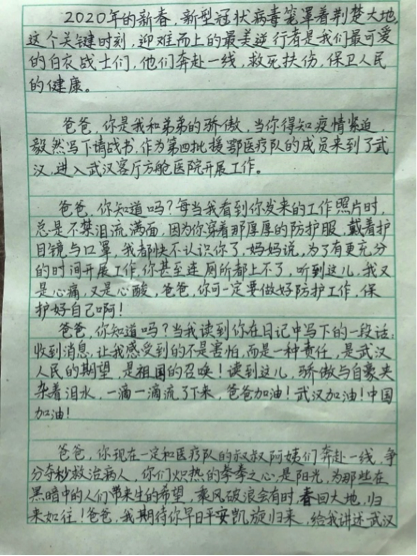 2020年的新春,新型冠状病毒笼罩着荆楚大地,
这个关键时刻,迎难而上的最美逆行者是我们最可爱
的白衣战士们,他们奔赴一线,救死扶伤,保卫人民
的健康。
爸爸,你是我和弟弟的骄傲,当你得知疫情紧迫,
毅然写下请战书,作为第四批援鄂医疗队的成员来到了武
汉,进入武汉客厅方舱医院开展工作。
爸爸,你知道吗?每当我看到你发来的工作照片时,
总是不禁泪流满面,因为你穿着那厚厚的防护服,戴着护
目镜与口罩,我都快不认识你了,妈妈说,为了有更充分
的时间开展工作,你甚至连厕所都上不了,听到这儿,我又
是心痛,又是心酸,爸爸,你可一定要做好防护工作,保
护好自己啊!
爸爸,你知道吗?当我读到你在日记中写下的一段话:
收到消息,让我感受到的不是害怕,而是一种责任,是武汉
人民的期望,是祖国的召唤!读到这儿,骄傲与自豪夹
杂着泪水,一滴一滴流了下来,爸爸加油!武汉加油!中国
加油!
爸爸,你现在一定和医疗队的叔叔阿姨们奔赴一线,争
分夺秒救治病人,你们炽热的拳拳之心是阳光,为那些在
黑暗中的人们带来生的希望,乘风破浪会有时,春回大地,归
来如往!爸爸,我期待你早日平安凯旋归来,给我讲述武汉